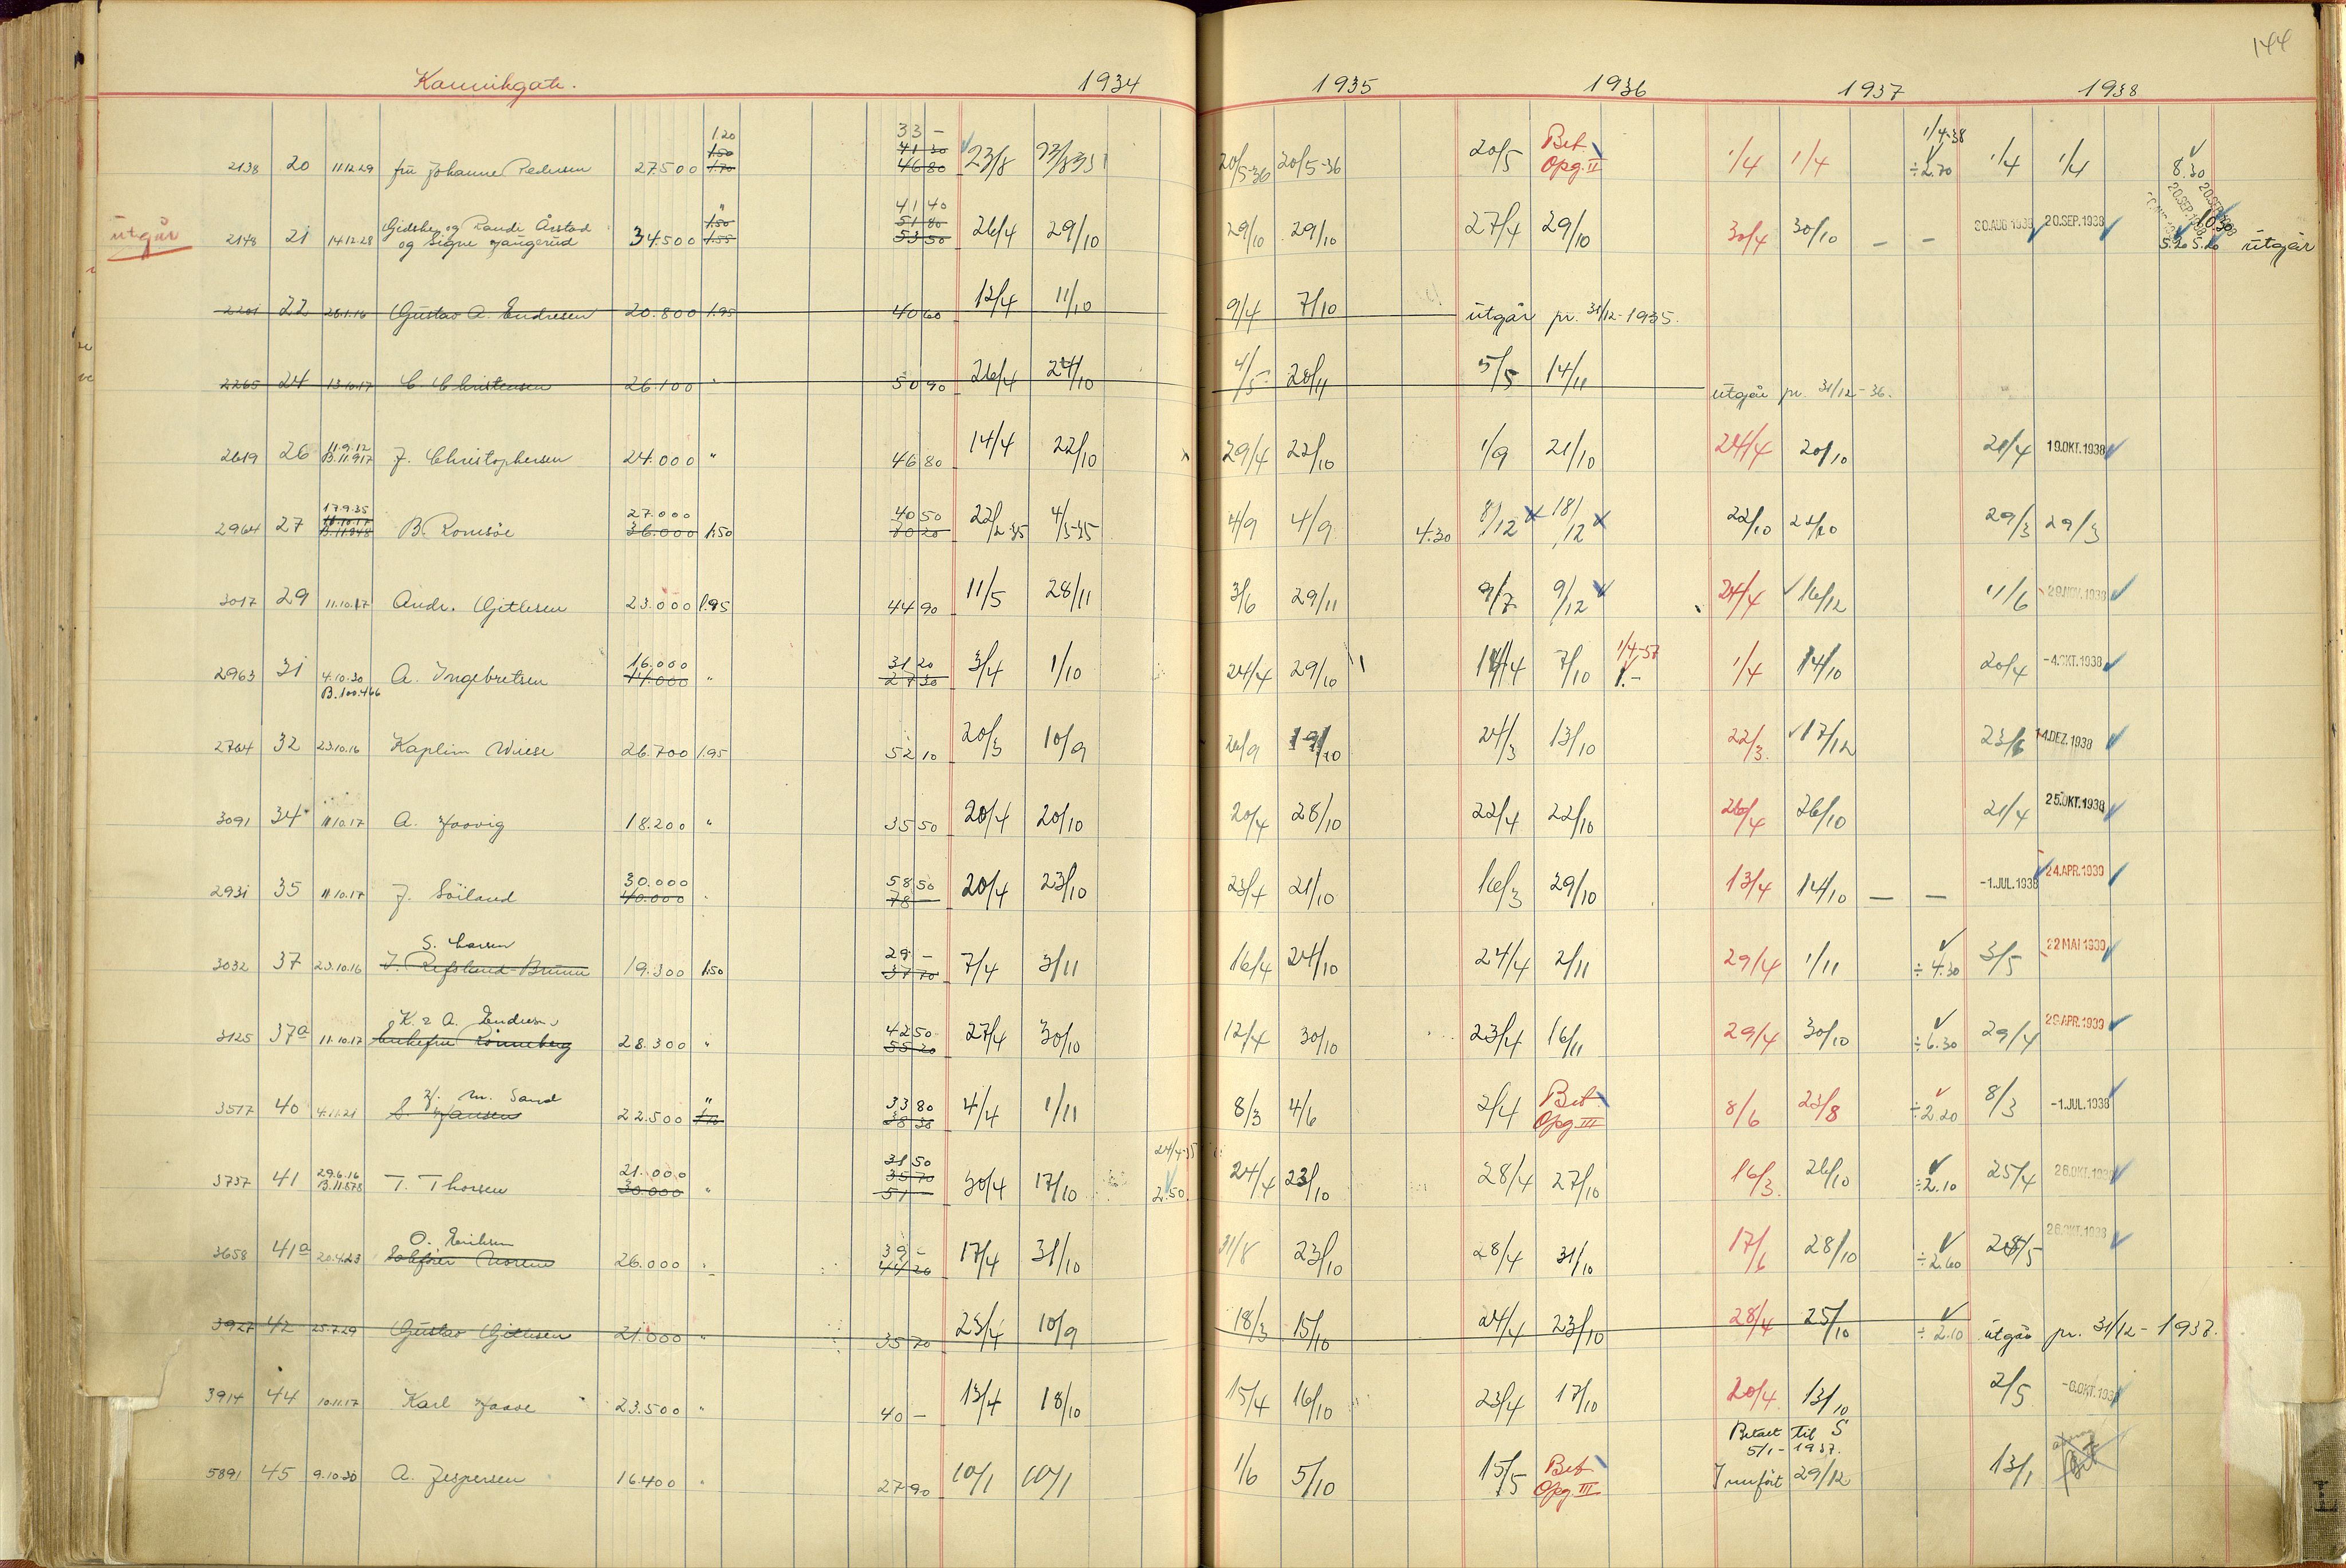 144
Kannikgate. 1934 1935 1936 1937 1938
33 –
120 1/4-38
1.50 41 30 Bet.
2138 20 11.12.29 fru Johanne Pedersen 27.500 1.70 46 80 23/8 20/5-36 20/5-36 20/5 Opg. II 1/4 1/4 ÷2.70 1/4 1/4 8.30
41 40
" 51 80
utgår 2148 21 14.12.28 Gidske og Randi Årstad 34.500 1.50 53 50 26/4 29/10 29/10 29/10 27/4 29/10 30/4 30/10 – – 30.AUG 1938 20.SEP.1938 10.30
og Signe Haugerud 1.55 5.20 5.20 utgår
2201 22 28.1.16 Gustav A. Endresen 20.800 1.95 40 60 12/4 11/10 9/4 7/10 utgår pr. 31/12-1935.
2265 24 13.10.17 C. Christensen 26.100 " 50 90 26/4 24/10 4/5 28/11 5/5 14/11 utgår pr. 31/12-36.
11.9.12
2619 26 B.11.917 J. Christophersen 24.000 " 46 80 14/4 22/10 29/4 22/10 1/9 21/10 24/4 20/10 21/4 19.OKT.1938
17.9.35 27.000 40 50
11.10.17
2964 27 B.11.848 B. Romsöe 36.000 1.50 70 20 22/2-35 4/3-35 4/9 4/9 4.30 8/12 18/12 22/10 22/10 29/3 29/3
3017 29 11.10.17 Andr. Gitlesen 23.000 1.95 44 90 11/5 28/11 3/6 29/11 9/7 9/12 24/4 16/12 11/6 29.NOV.1938
16.000 31 20
2963 31 4.10.30 A. Ingebretsen 14.000 " 27 30 3/4 1/10 24/4 29/10 14/4 7/10 1/4-37 1.- 1/4 14/10 20/4 -4.OKT.1938
B.100.466
2764 32 23.10.16 Kaplein Wiese 26.700 1.95 52 10 20/3 10/9 26/9 19/10 24/3 13/10 22/3. 17/12 23/6 14.DEZ.1938
3091 34 11.10.17 A. Haavig 18.200 " 35 50 20/4 20/10 20/4 28/10 22/4 22/10 26/4 26/10 21/4 25.OKT.1938
30.000 58 50
2931 35 11.10.17 J. Söiland 40.000 " 78 – 20/4 23/10 23/4 21/10 16/3 29/10 13/4 14/10 – – -1.JUL.1938 24.APR.1939
S. Larsen 29 –
3032 37 23.10.16 J. Refsland-Bruun 19.300 1.50 37 70 7/4 3/11 16/4 24/10 24/4 2/11 29/4 1/11 ÷4.30 3/5 22 MAI 1939
K. & A. Endresen 42 50
3125 37a 11.10.17 Enkefru Rönneberg 28.300 " 55 20 27/4 30/10 12/4 30/10 23/4 16/11 29/4 30/10 ÷6.30 29/4 29.APR.1939
H. M. Sand " 33 80 Bet.
3517 40 4.11.21 S. Hansen 22.500 1.70 38 30 4/4 1/11 8/3 4/6 2/4 Opg. III 8/6 23/8 ÷2.20 8/3 -1.JUL.1938
31 50 24/4-35
29.6.16 21.000 35 70
3737 41 B.11.878 T. Thorsen 30.000 " 51 – 30/4 17/10 2.50 24/4 23/10 28/4 27/10 16/3. 26/10 ÷2.10 25/4 26.OKT.1938
O. Eriksen 39 –
3658 41a 20.4.23 26.000 " 44 20 17/4 31/10 31/8 23/10 28/4 31/10 17/6 28/10 ÷2.60 28/5 26.OKT.1938
3927 42 25.7.29 Gustav Gitlesen 21.000 " 35 70 23/4 10/9 18/3 15/10 24/4 23/10 28/4 25/10 ÷2.10 utgår pr. 31/12-1937.
3914 44 10.11.17 Karl Haave 23.500 " 40 – 13/4 18/10 15/4 16/10 23/4 17/10 20/4 13/10 2/5 -6.OKT.1938
Betalt til S
5/1-1937.
5891 45 9.10.30 A. Jespersen 16.400 " 27 90 10/1 10/1 1/6 5/10 15/5 Bet. Opg. III Innfört 29/12 13/1